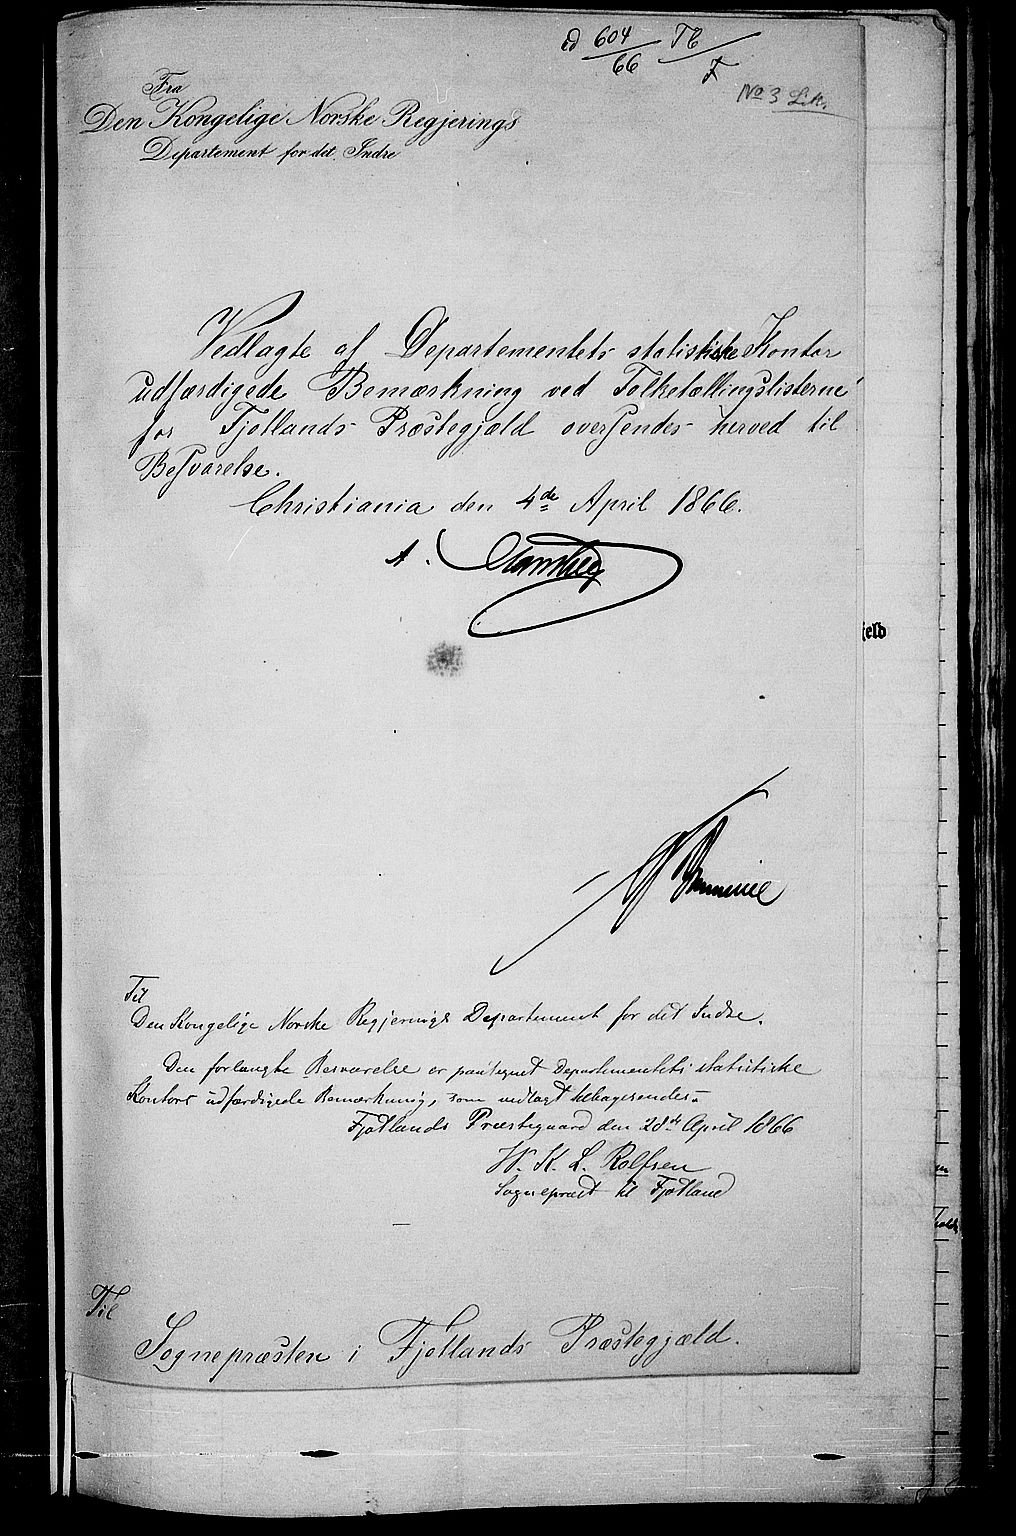 ad 604/66 Tb/F
No 3 Lit.
Fra
Den Kongelige Norske Regjerings
Departement for det Indre
Vedlagte af Departementets statistiske Kontor
udfærdigede Bemærkning ved Folketællingslisterne
for Fjotlands Præstegjæld oversendes herved til
Besvarelse.
Christiania den 4de April 1866.
A.
Til
Den Kongelige Norske Regjerings Departement for det Indre.
Den forlangte Besvarelse er paategnet Departementets statistiske
Kontors udfærdigede Bemærkning, som vedlagt tilbagesendes.
Fjotlands Præstegaard den 28de April 1866
W. K. L. Rolfsen
Sognepræst til Fjotland
Til
Sognepræsten i Fjotlands Præstegjæld.
jeld